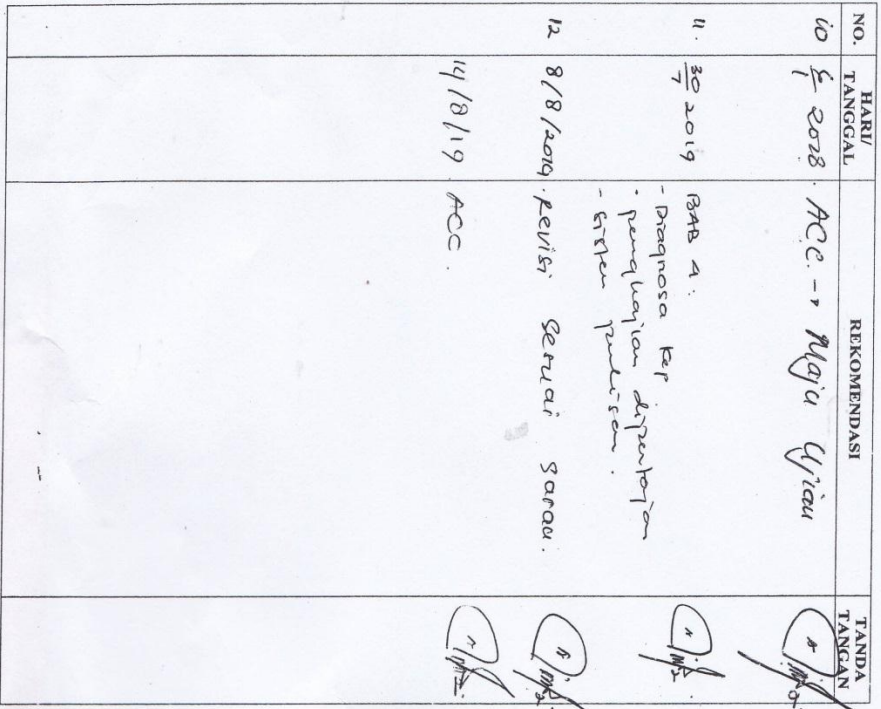 NO. HARI/ TANGGAL REKOMENDASI TANDA TANGAN
10 2018. ACC. → Maju Ujian
11. 30/7 2019 BAB 4.
- Diagnosa Kep
- pengkajian dipertajam
- sistem penulisan.
12 8/8/2019. Revisi sesuai saran.
14/8/19. ACC.